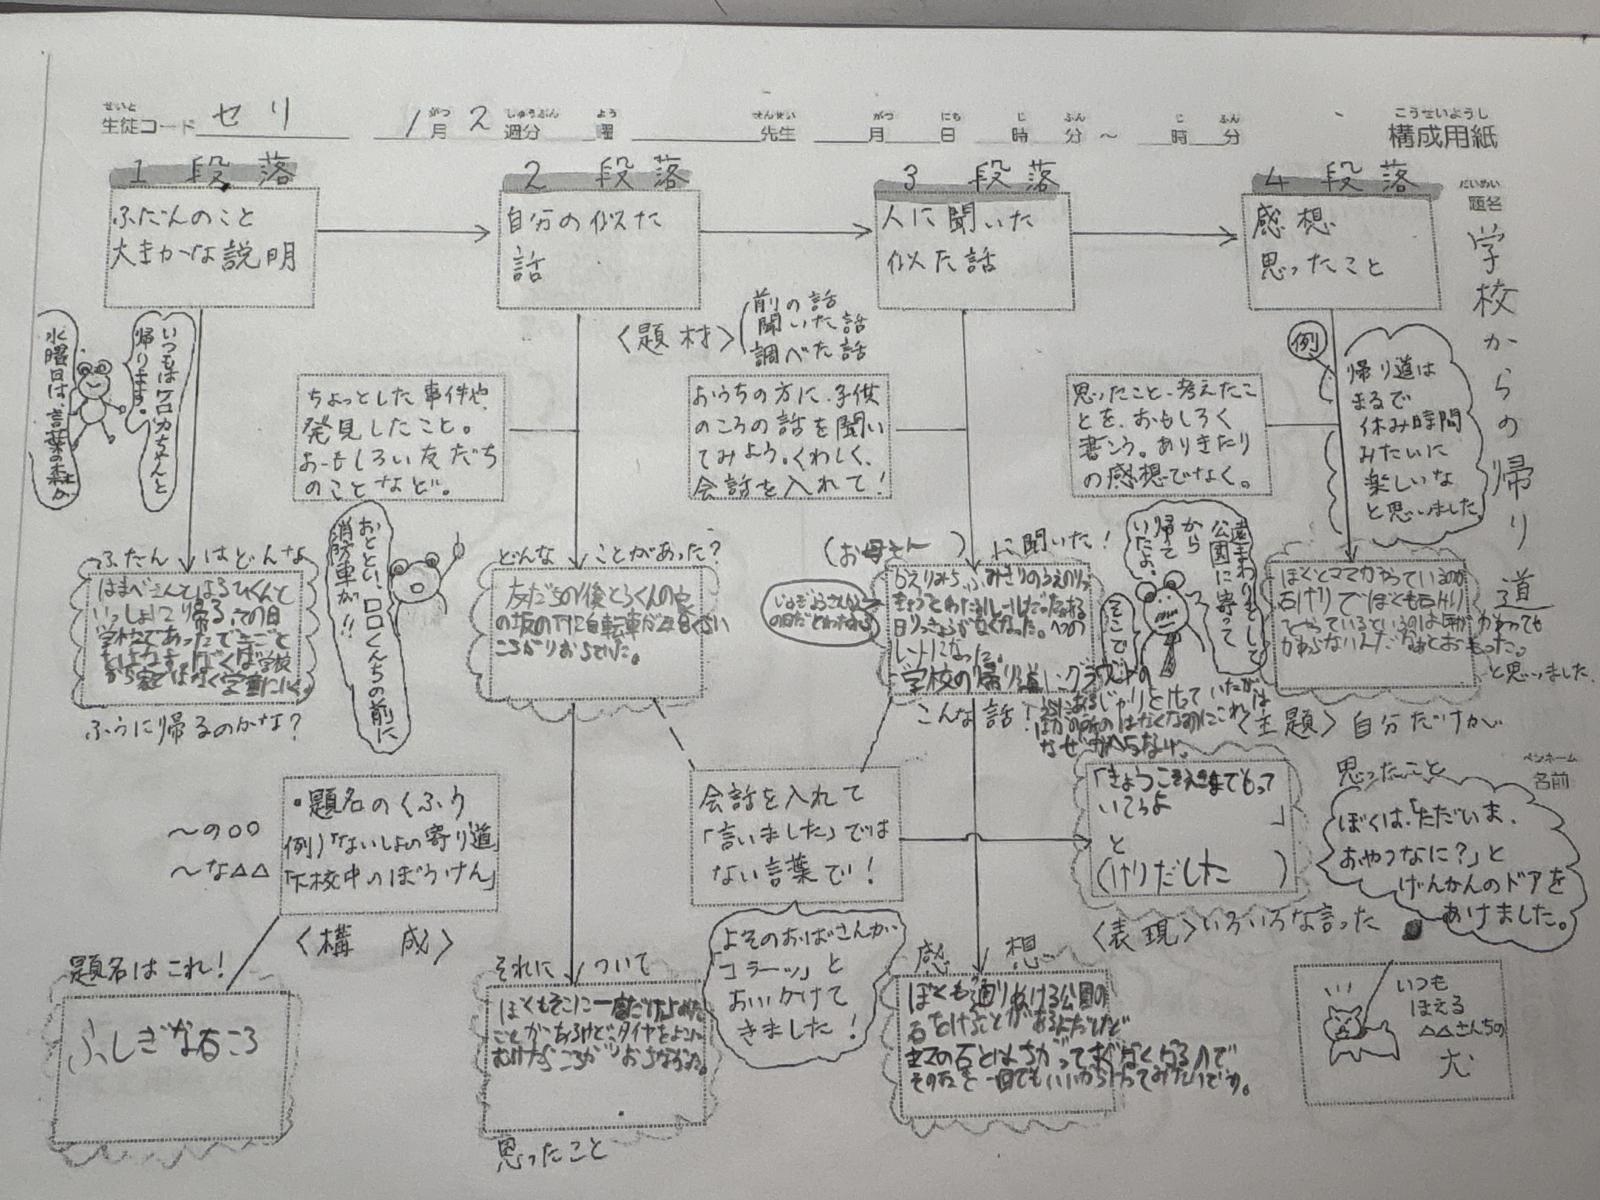 せいと
生徒コード セリ
1月2週分 曜 先生 月 日 時 分 ～ 時 分
こうせいようし
構成用紙
だいめい
題名
学校からの帰り道
1 段落
ふだんのこと
大まかな説明
2 段落
自分の似た
話
3 段落
人に聞いた
似た話
4 段落
感想
思ったこと
いつもはケロカちゃんと
帰ります。
水曜日は、言葉の森が
〈題材〉
前の話
聞いた話
調べた話
例
帰り道は
まるで
休み時間
みたいに
楽しいな
と思いました。
ちょっとした事件や、
発見したこと。
おもしろい友だち
のことなど。
おうちの方に、子供
のころの話を聞い
てみよう。くわしく、
会話を入れて！
思ったこと、考えたこ
とを、おもしろく
書こう。ありきたり
の感想でなく。
おととい、ロロくんちの前に
消防車が！！
遠まわりをして
公園に寄って
から
帰って
いたよ。
そこで
ふだん はどんな
はまべさんとはるひくんと
いっしょに帰る。その日
学校であったできごと
ふうに帰るのかな？
どんな ことがあった？
の坂の下に自転車が
ころがりおちていた。
（お母さん ）に聞いた！
学校の帰り道、グラウンドの
こんな話！
ぼくとママがやっているのが
石けりでぼくも石けり
かわらないんだなぁとおもった。
と思いました。
〈主題〉自分だけが
思ったこと
ペンネーム
名前
ぼくは、「ただいま、
おやつなに？」と
げんかんのドアを
あけました。
・題名のくふう
例）「ないしょの寄り道」
「下校中のぼうけん」
～の○○
～な△△
〈構 成〉
会話を入れて
「言いました」では
ない言葉で！
「きょうこそ家までもって
いてうよ
」
と
（けりだした ）
〈表現〉いろいろな言った
よそのおばさんが
「コラーッ」と
おいかけて
きました！
題名はこれ！
ふしぎな石ころ
それに ついて
ぼくもそこに
ことがあるけど、タイヤをよこに
むけたらころがりおちなかった。
思ったこと
感 想
ぼくも通りぬける公園の
石をけることがあるんだけど
ママの石とはちがってすぐなくなるので
その石を一日でもいいからけってみたいです。
いつも
ほえる
△△さんちの
犬